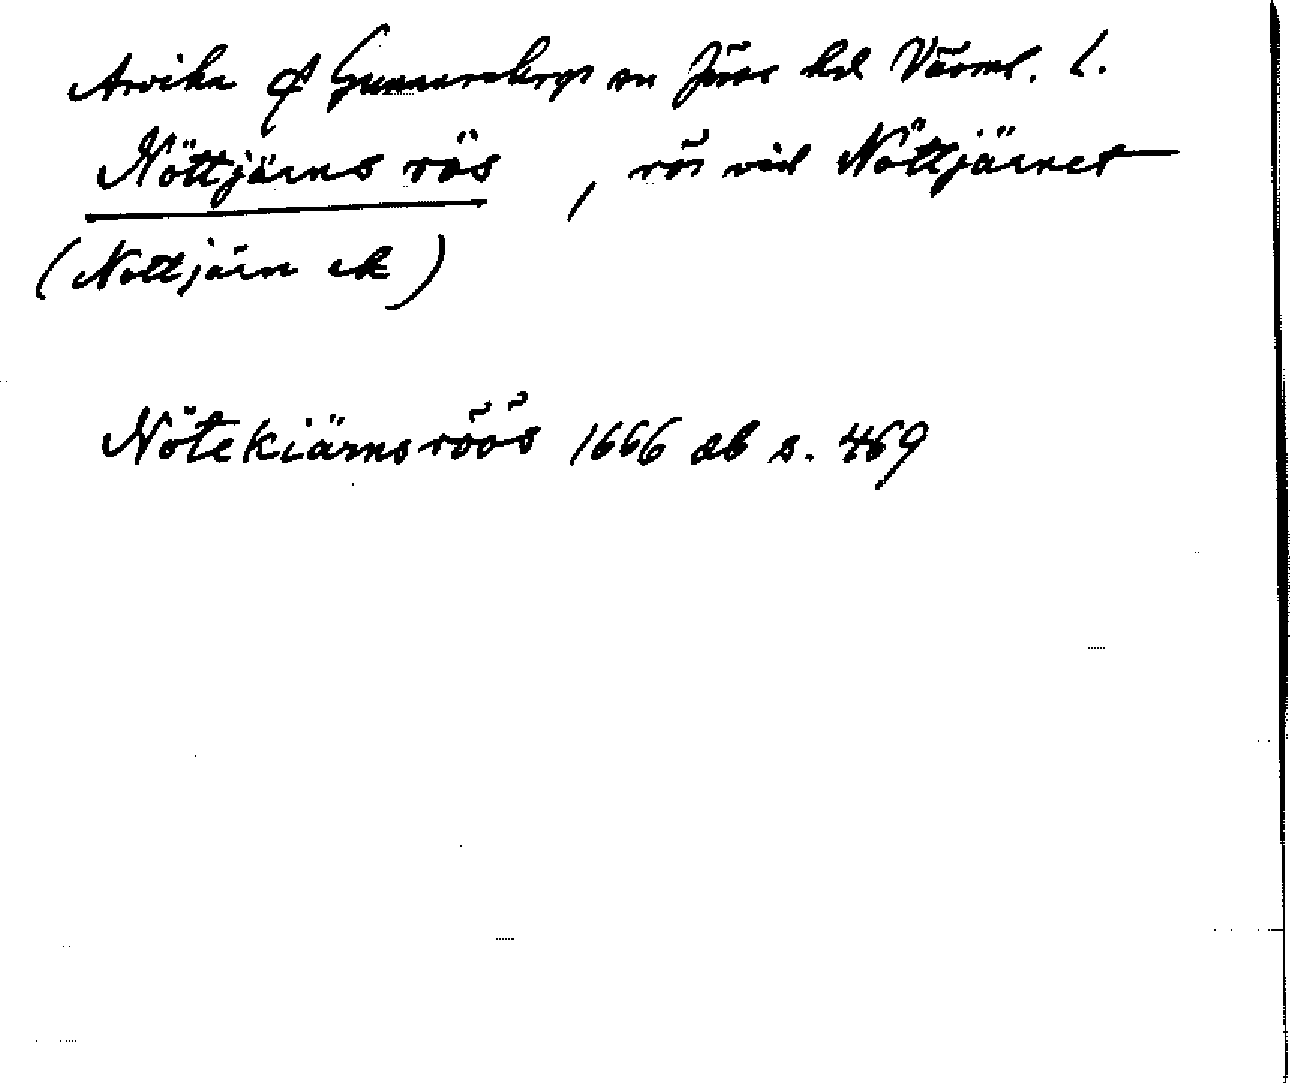 Arvika of Gunnarskogs sn Jösse hd Värml. L.
Nöttjärns rös, rös vid Nöttjärnet
(Nottjärn ek)
Nötekiärnsröös 1666 db s. 469